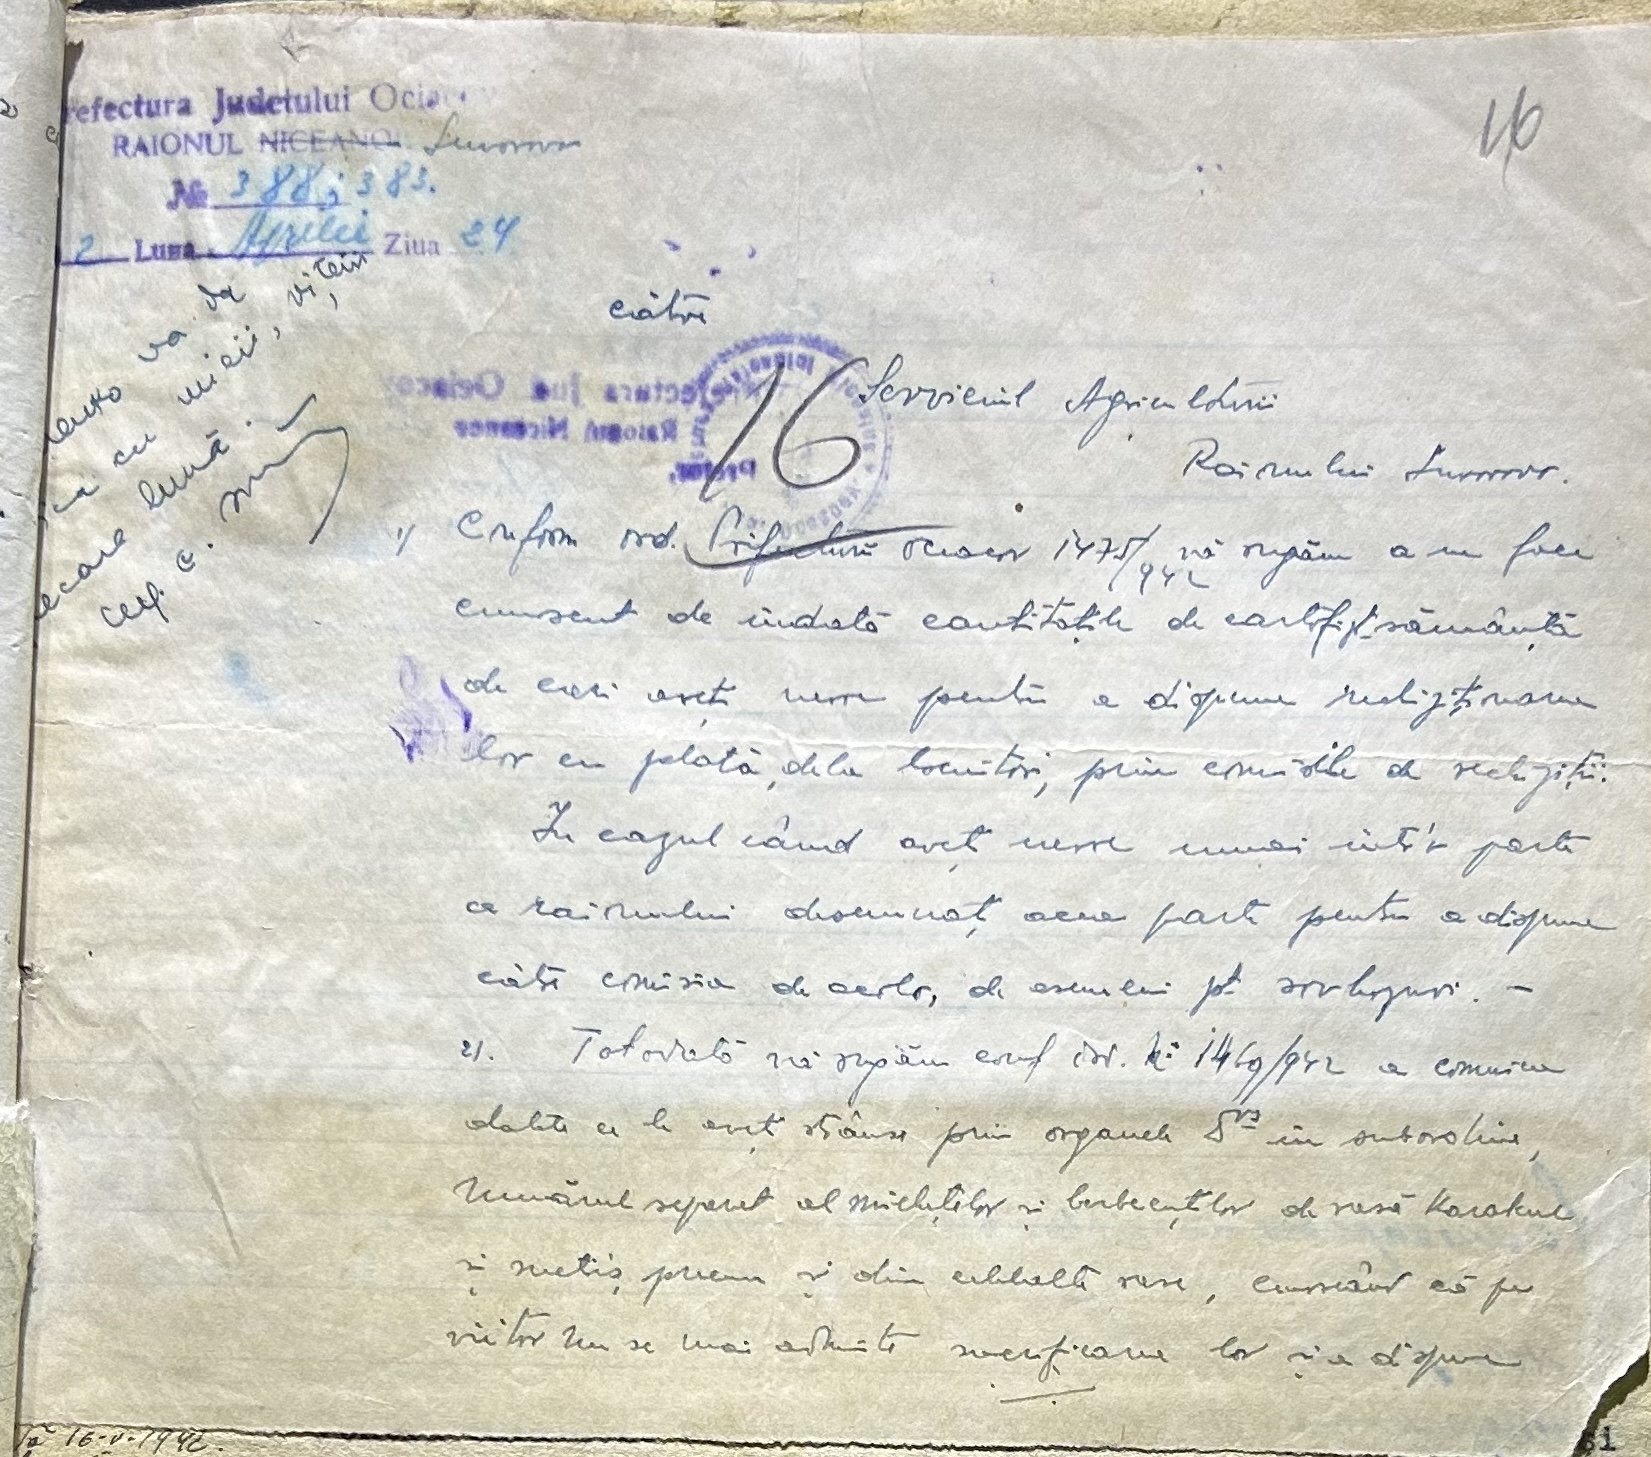 Prefectura Judetului Ociacov
RAIONUL NICEANOE Suvorov
№ 388; 383.
2 Luna Aprilie Ziua 24
16
va da
cu mieii, viței
lună.
către
16
Serviciul Agriculturii
Raionului Suvorov.
1) Conform ord. Prefecturii Ociacov 1475/942 vă rugăm a ne face
cunoscut de îndată cantitățile de cartofi pt. sămânță
de cari aveți nevoe pentru a dispune rechiziționarea
lor cu plată, dela locuitori, prin comisiile de rechiziții.
In cazul când aveți nevoe numai într'o parte
a raionului desemnați acea parte pentru a dispune
către comisia de acolo, de asemenei pt. sovhozuri. –
2). Totodată vă rugăm conf. ord. № 1469/942 a comunica
datele ce le aveți strânse prin organele Dvs în subordine,
Numărul separat al mieluțelor și berbecuților de rasă Karakul
și metiș, precum și din celelalte rase, cunoscând că pe
viitor nu se mai admite sacrificarea lor și a dispune
16-V-1942.
61